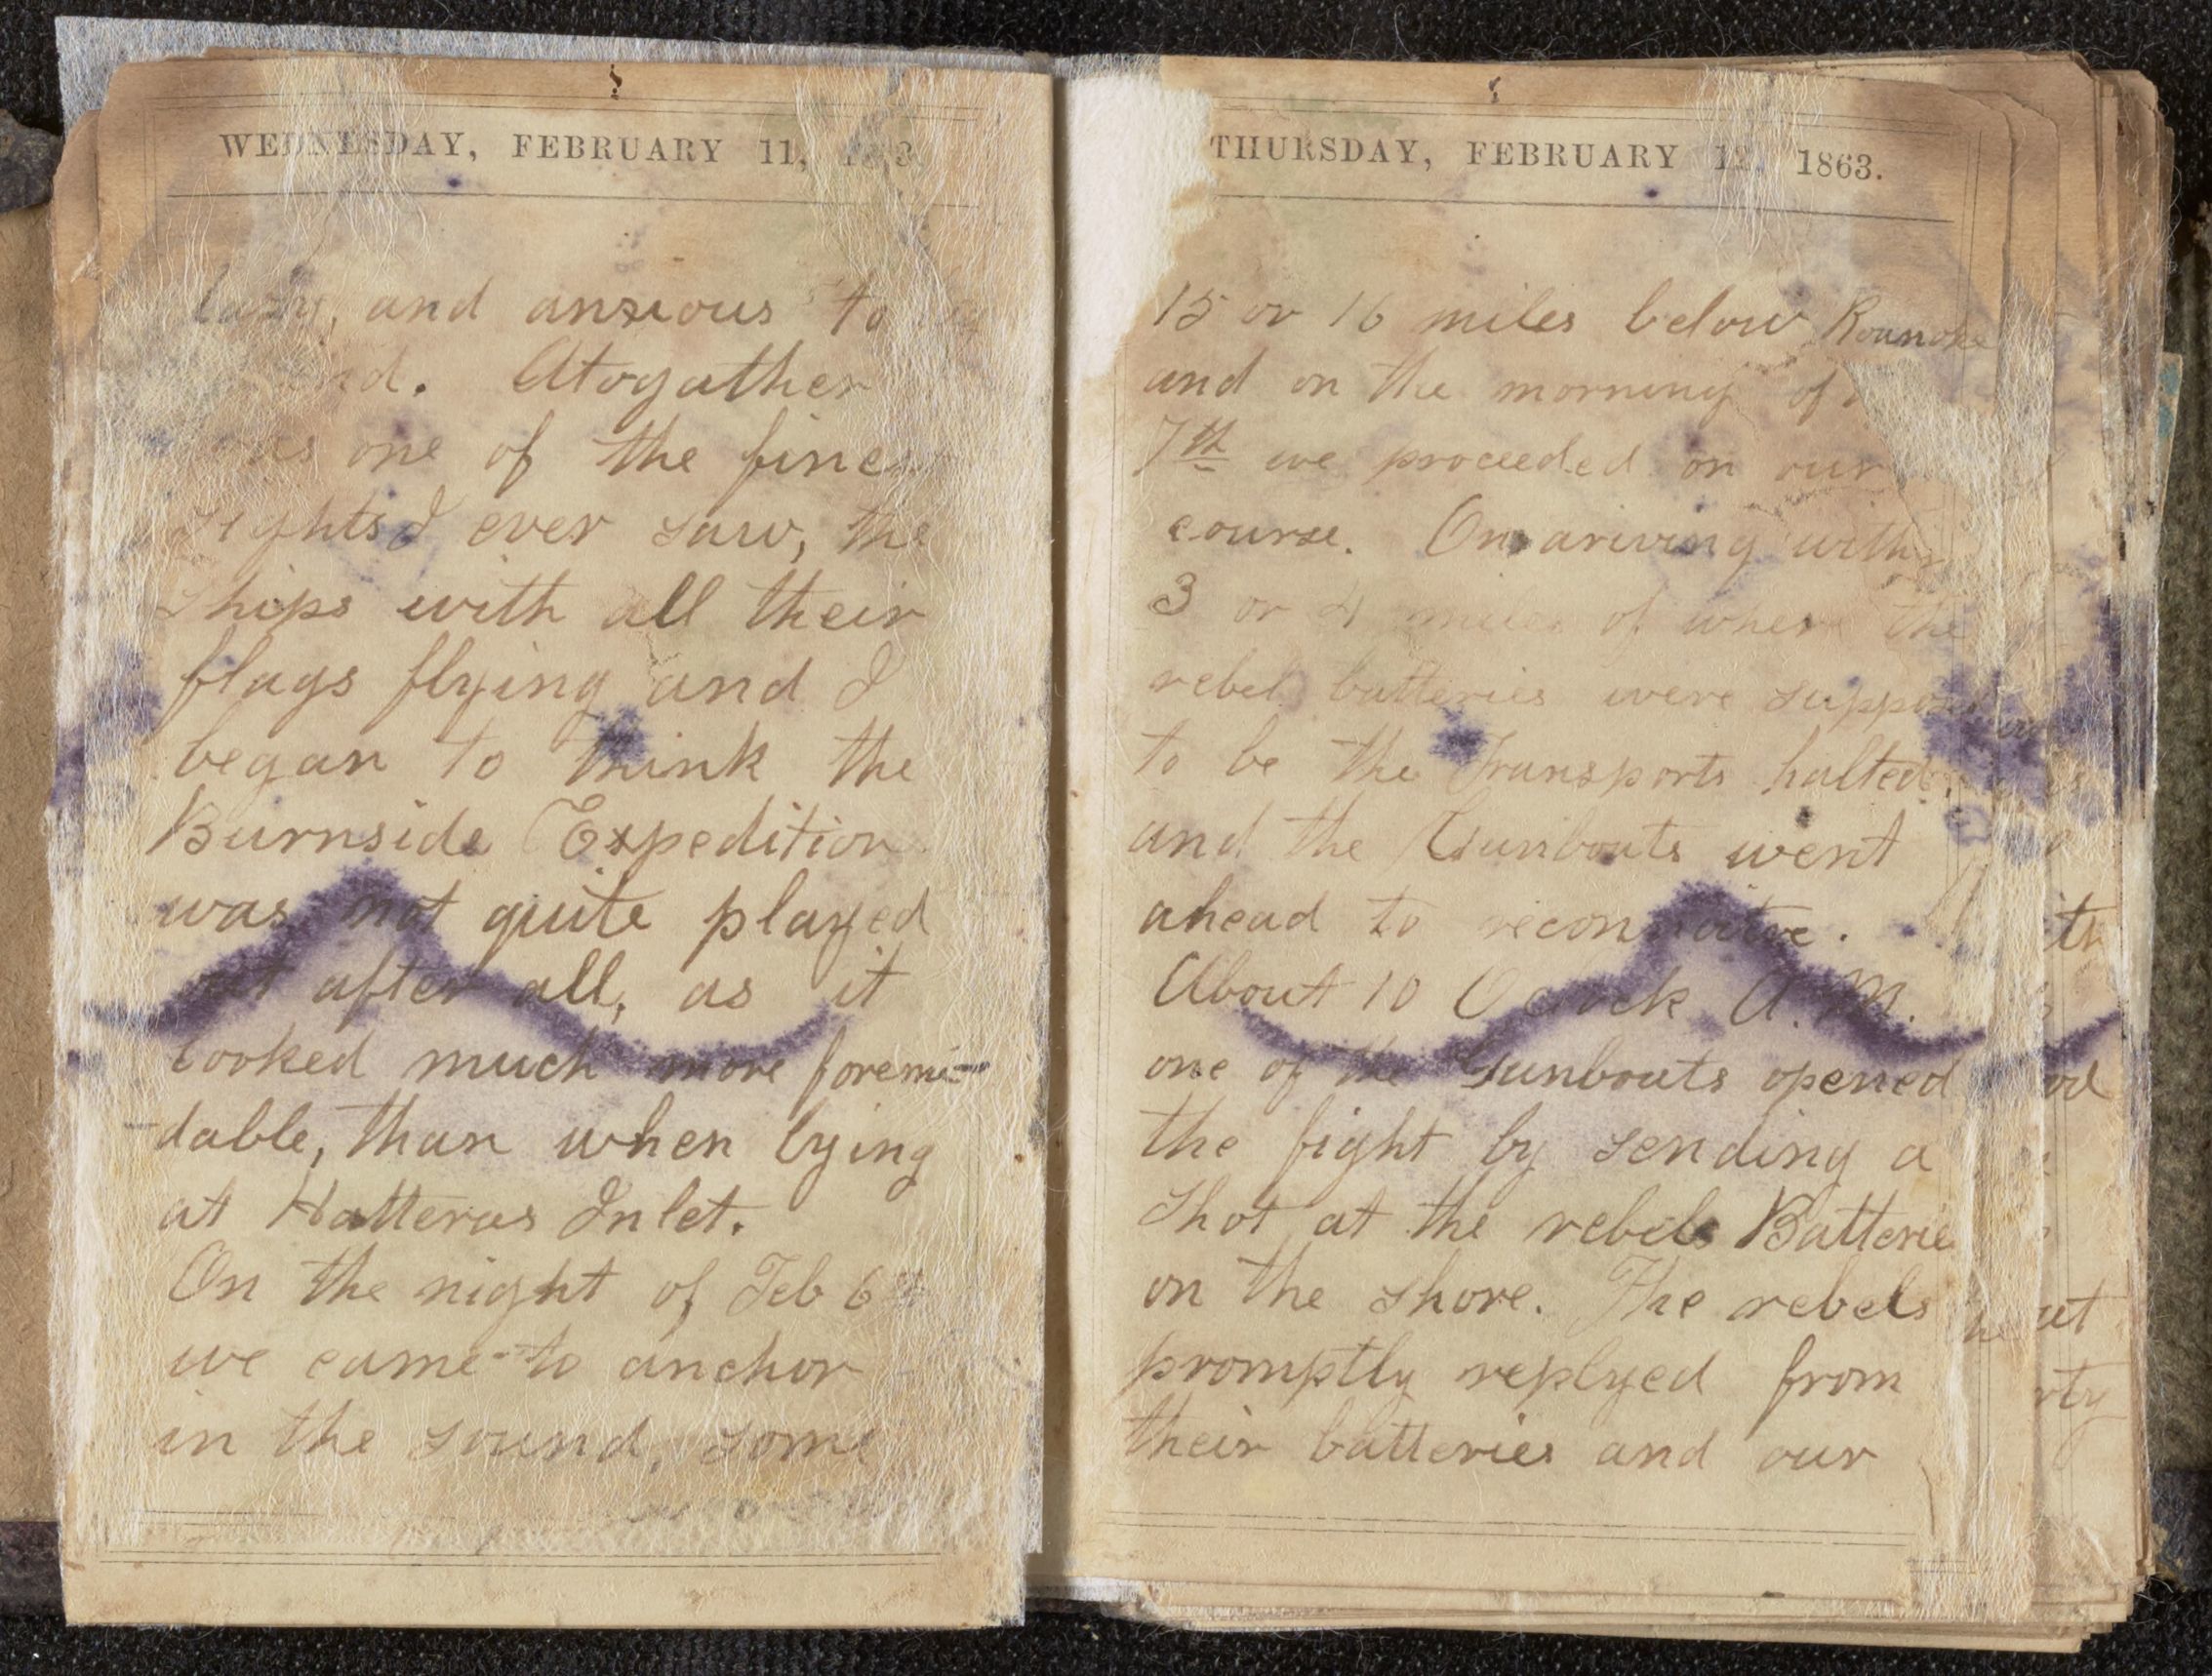 WEDNESDAY, FEBRUARY 11,
lazy, and anxious to
Atogather
was one of the fines
sights I ever saw, the
ships with all their
flags flying and I
began to think the
Burnside Expedition
was not quite played
out after all, as it
looked much more foremi-
dable, than when lying
at Hatteras Inlet.
On the night of Feb 6th
we came to anchor
in the sound, some
THURSDAY, FEBRUARY 12, 1863.
15 or 16 miles below Roanoke
and on the morning of
7th we proceeded on our
course. On ariving within
3 or 4 miles of where the
rebel batteries were supposed
to be the Transports halted,
and the Gunboats went
ahead to reconnoitre.
About 10 O clock A.M.
one of the Gunboats opened
the fight by sending a
shot at the rebels Batterie
on the shore. The rebels
promptly replyed from
their batteries and our